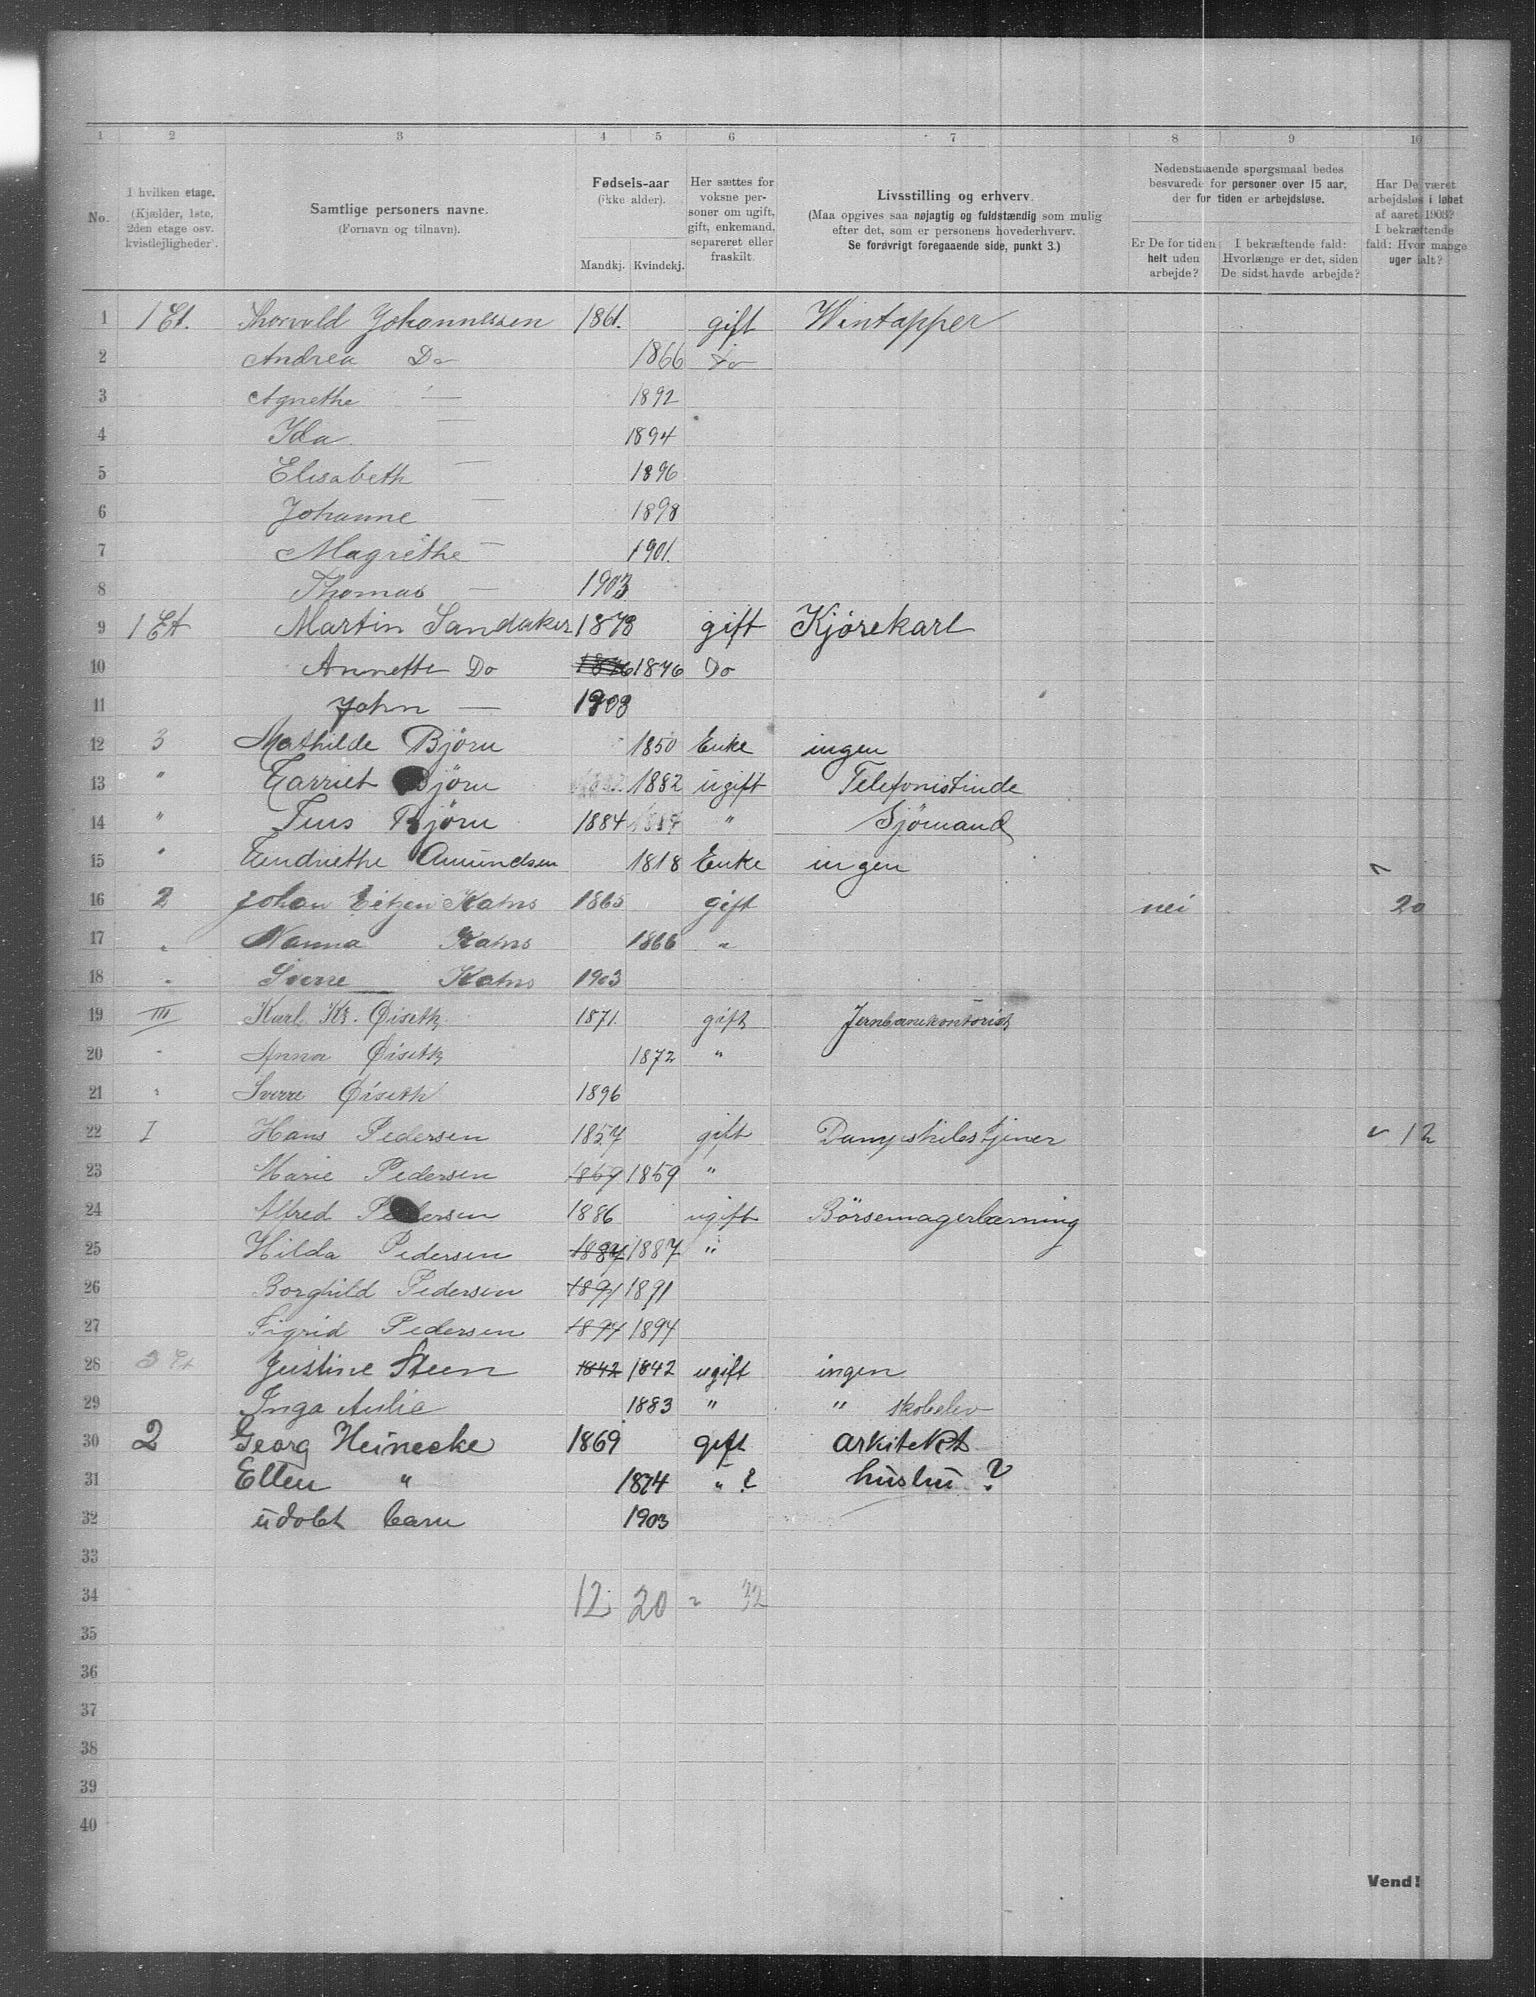 1 2 3 4 5 6 7 8 9 10
No.
I hvilken etage.
(Kjælder, 1ste, 2den etage osv. kvistlejligheder).
Samtlige personers navne.
(Fornavn og tilnavn).
Fødsels-aar
(ikke alder).
Mandkj. Kvindekj.
Her sættes for voksne personer om ugift, gift, enkemand, separeret eller fraskilt.
Livsstilling og erhverv.
(Maa opgives saa nøjagtig og fuldstændig som mulig efter det, som er personens hovederhverv.
Se forøvrigt foregaaende side, punkt 3.)
Nedenstaaende spørgsmaal bedes besvarede for personer over 15 aar, der for tiden er arbejdsløse.
Er De for tiden helt uden arbejde?
I bekræftende fald: Hvorlænge er det, siden De sidst havde arbejde?
Har De været arbejdsløs i løbet af aaret 1903?
I bekræftende fald: Hvor mange uger ialt?
1 1 Et. Thorvald Johannessen 1861. gift Wintapper
2 Andrea Do 1866 Do
3 Agnethe — 1892
4 Ida — 1894
5 Elisabeth — 1896
6 Johanne — 1898
7 Magrethe — 1901.
8 Thomas — 1903
9 1 Et Martin Sandaker 1878 gift Kjørekarl
10 Annette Do 1876 1876 Do
11 John — 1903
12 3 Mathilde Bjørn 1850 Enke ingen
13 " Harriet Bjørn 1882 1882 ugift Telefonistinde
14 " Jens Bjørn 1884 1884 " Sjömand
15 " Hendriethe Amundsen 1818 Enke ingen
16 2 Johan Eitzen Kahrs 1865 gift nei 20
17 " Nanna Kahrs 1866 "
18 " Sverre Kahrs 1903
19 III Karl Kr. Øiseth 1871. gift Jernbanekontorist
20 " Anna Øiseth 1872 "
21 " Sverre Øiseth 1896
22 I Hans Pedersen 1857 gift Dampskibstjener v 12
23 Marie Pedersen 1859 1859 "
24 Alfred Pedersen 1886 ugift Börsemagerlærning
25 Hilda Pedersen 1887 1887 "
26 Borghild Pedersen 1891 1891
27 Sigrid Pedersen 1894 1894
28 3 Et Justine Steen 1842 1842 ugift ingen
29 Inga Aulie 1883 " " skobelev
30 2 Georg Heinecke 1869 gift arkitekt
31 Ellen " 1874 " ? hustru ?
32 udøbt barn 1903
33
34 12 20 = 32
35
36
37
38
39
40
Vend!